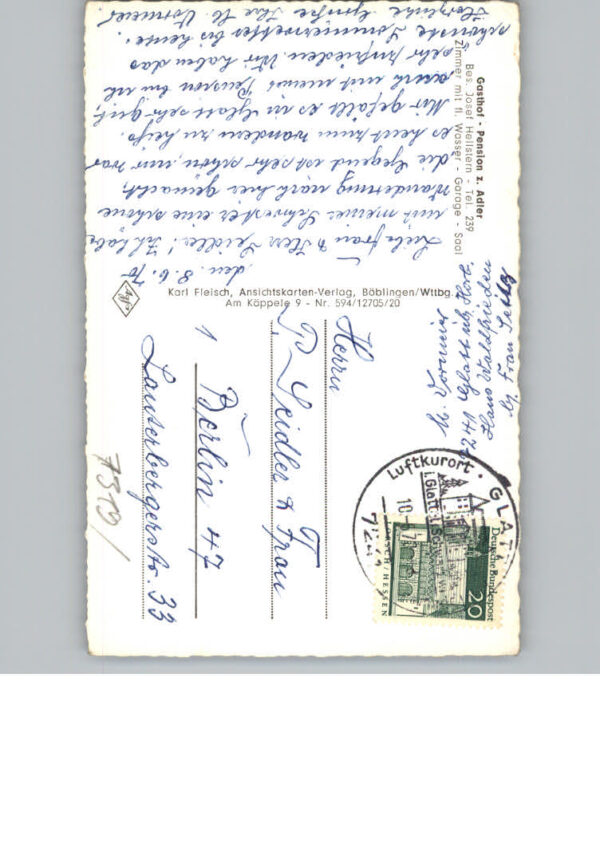 Gasthof - Pension z. Adler
Bes. Josef Hellstern - Tel. 239
Zimmer mit fl. Wasser - Garage - Saal
den 8.6.70
Liebe Frau & Herr Seidler! Ich habe
mit meiner Schwester eine schöne
Wanderung nach hier gemacht,
die Gegend ist sehr schön, nur war
es heut zum wandern zu heiß.
Mir gefällt es in Glatt sehr gut,
auch mit meiner Pension bin ich
sehr zufrieden. Wir haben das
schönste Sommerwetter bis heute.
Herzliche Grüße Ihre M. Vormeier
Karl Fleisch, Ansichtskarten-Verlag, Böblingen/Wttbg.
Am Käppele 9 - Nr. 594/12705/20
Agfa
M. Vormeier
7241 Glatt üb. Horb.
Haus Waldfrieden
b/ Frau Seitz
Luftkurort · GLATT
i. Glatt
10
7241
Deutsche Bundespost
20
LORSCH/HESSEN
Herrn
P. Seidler & Frau
1 Berlin 47
Lauterbergerstr. 33
7519/